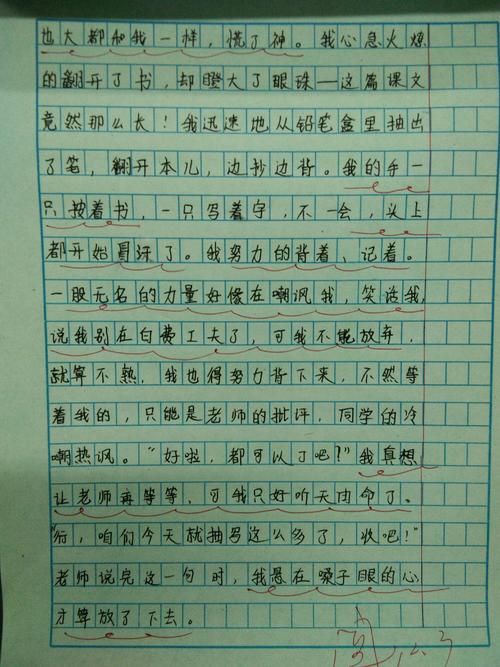 也大都和我一样，慌了神。我心急火燎
的翻开了书，却瞪大了眼珠—这篇课文
竟然那么长！我迅速地从铅笔盒里抽出
了笔，翻开本儿，边抄边背。我的手一
只按着书，一只写着字，不一会，头上
都开始冒汗了。我努力的背着、记着。
一股无名的力量好像在嘲讽我，笑话我，
说我别在白费工夫了，可我不能放弃，
就算不熟，我也得努力背下来，不然等
着我的，只能是老师的批评，同学的冷
嘲热讽。“好啦，都可以了吧？”我真想
让老师再等等，可我只好听天由命了。
“行，咱们今天就抽写这么多了，收吧！”
老师说完这一句时，我悬在嗓子眼的心
才算放了下去。